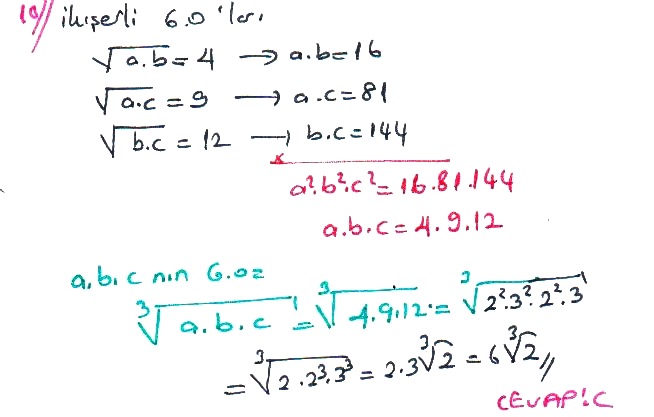 10// ikişerli G.O 'ları
√a.b = 4 → a.b=16
√a.c = 9 → a.c=81
√b.c = 12 → b.c=144
x
a².b².c²=16.81.144
a.b.c=4.9.12
a,b,c nin G.O=
³√a.b.c = ³√4.9.12 = ³√2².3².2².3
= ³√2.2³.3³ = 2.3³√2 = 6³√2//
CEVAP:C